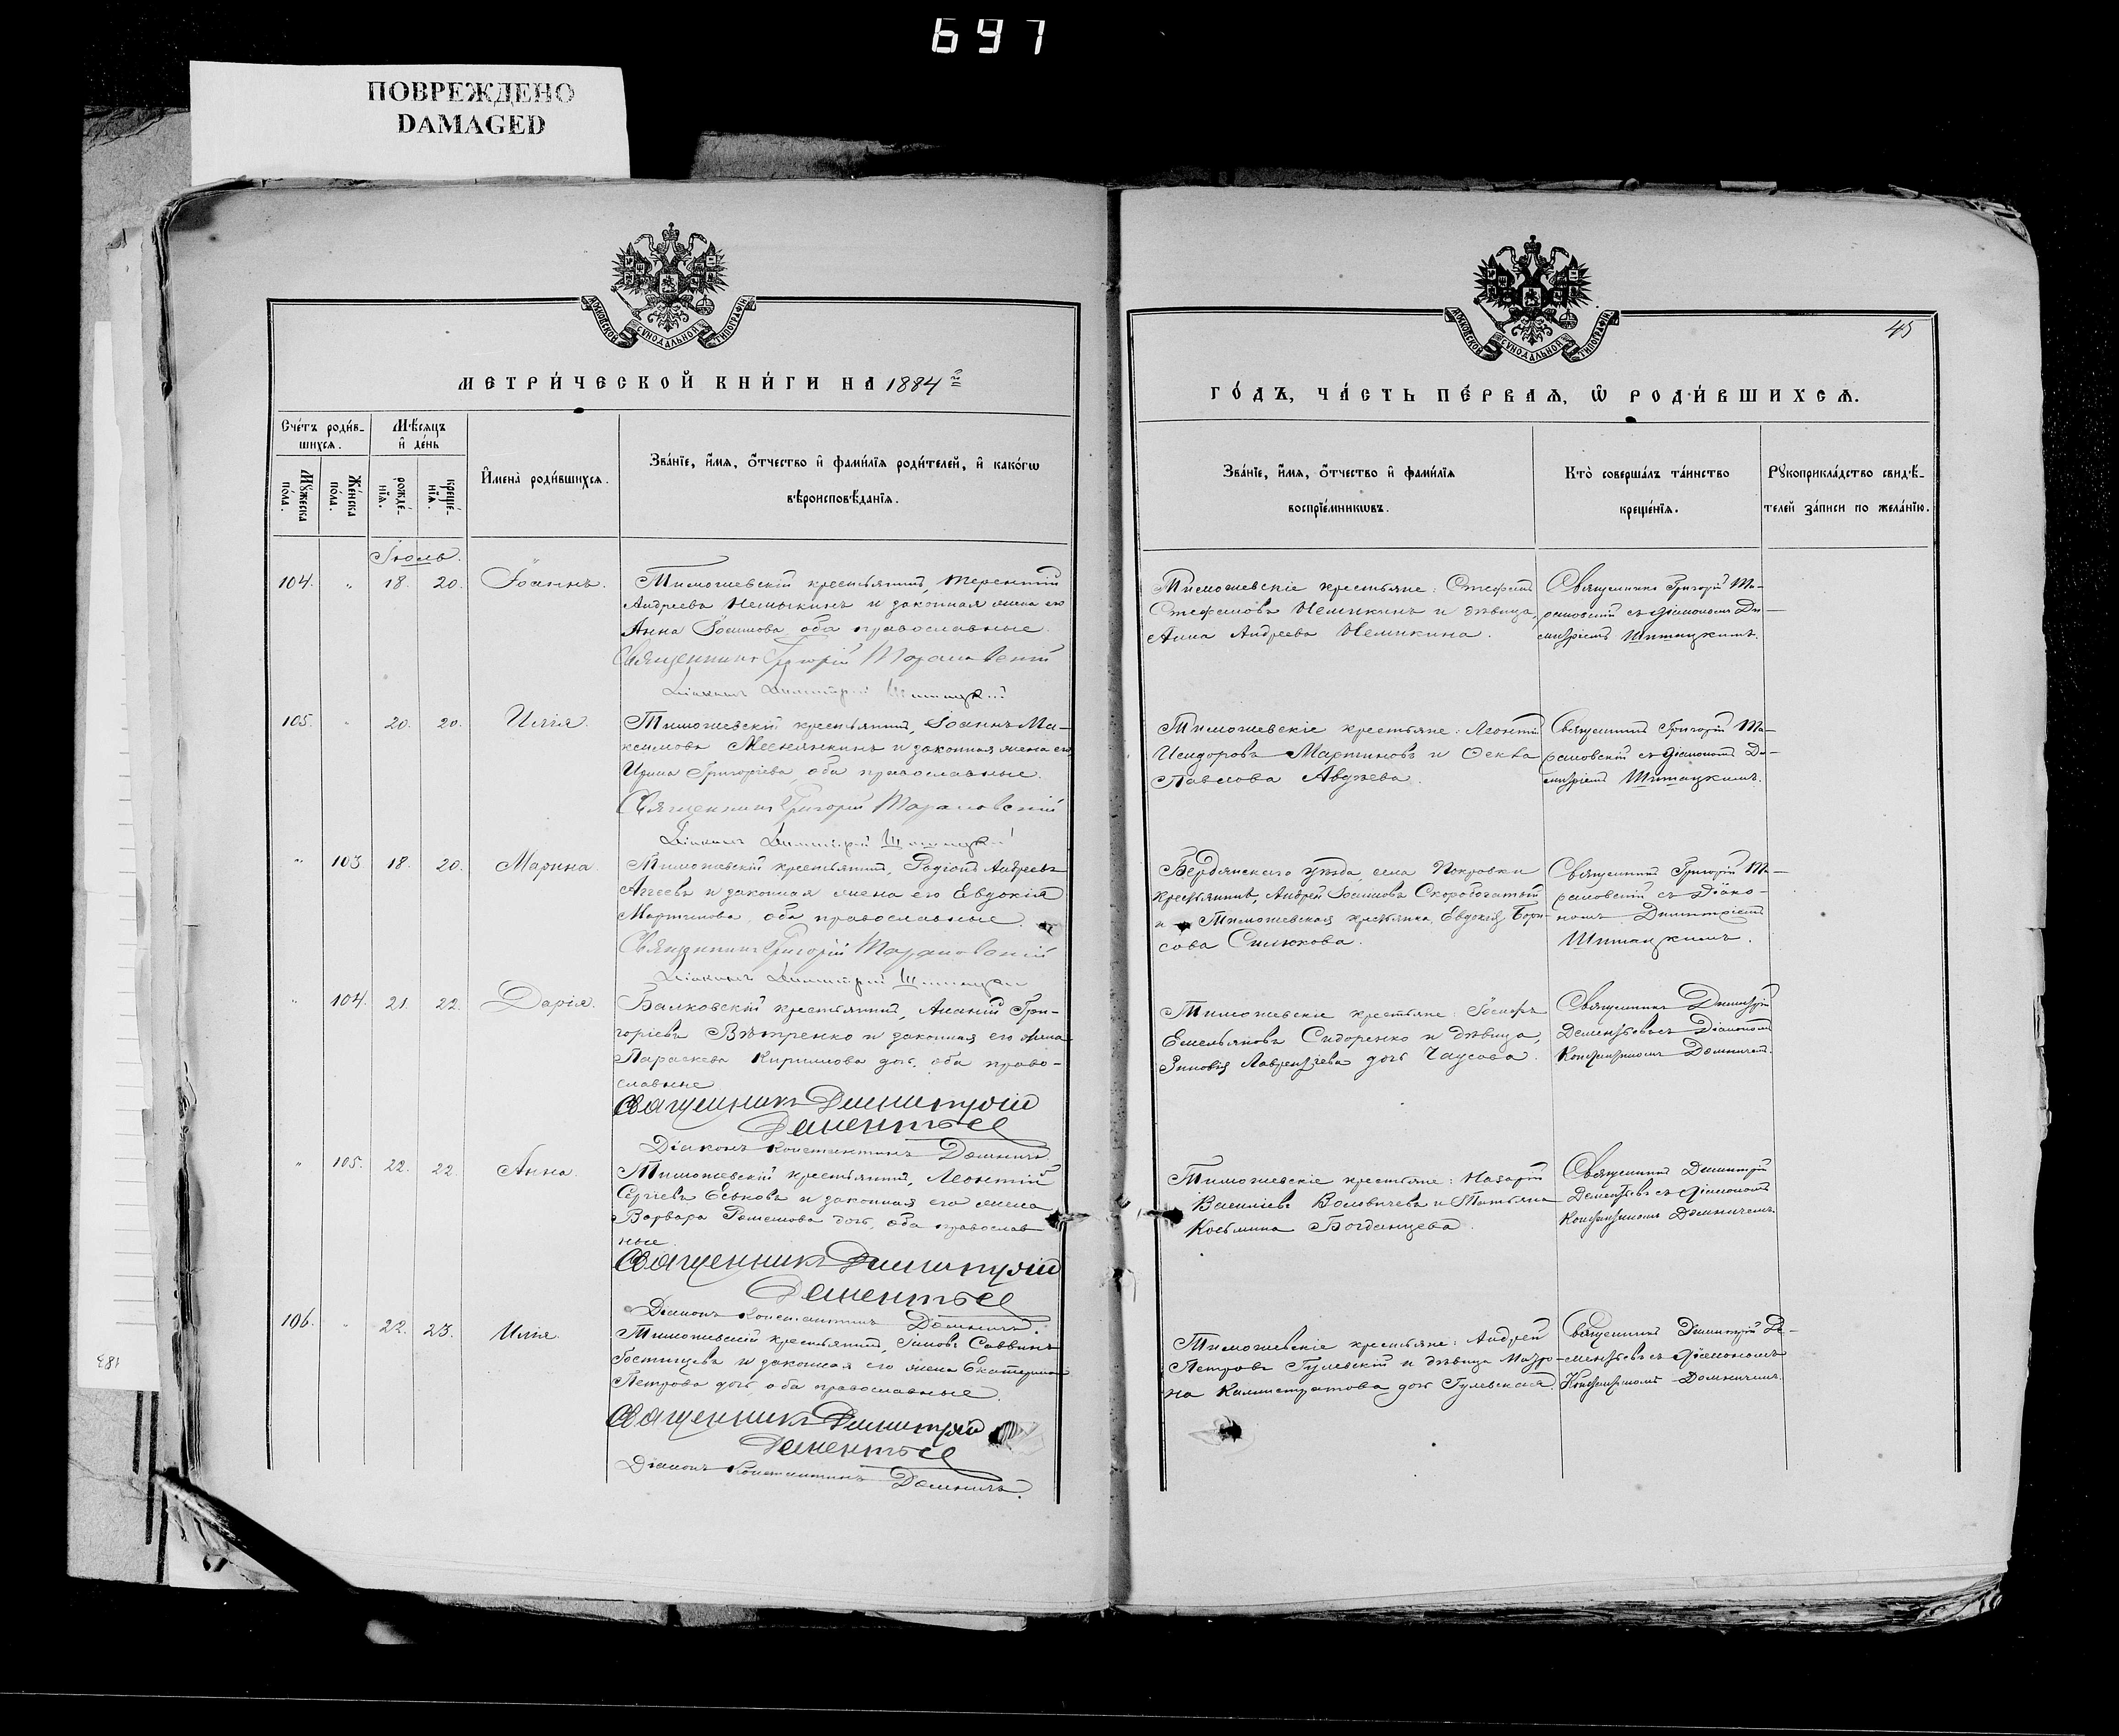 697
ПОВРЕЖДЕНО
DAMAGED
МОСКОВСКОЙ СѴНОДАЛЬНОЙ ТИПОГРАФІИ
МЕТРИ́ЧЕСКОЙ КНИ́ГИ НА 1884 г.
Сче́тъ роди́в-
шихсѧ.
Мꙋ́жеска по́ла.
Же́нска по́ла.
Мѣ́сѧцъ
и҆ де́нь
рожде́-
нїѧ.
креще́-
нїѧ.
И҆мена̀ роди́вшихсѧ.
Зва́нїе, и҆́мѧ, ѻ҆́тчество и҆ фами́лїѧ роди́телей, и҆ како́гѡ
вѣроисповѣ́данїѧ.
Іюль.
104. " 18. 20. Іоаннъ.
Тимошевскій крестьянинъ, Терентій
Андреевъ Немыкинъ и законная жена его
Анна Іоанова, оба православные.
Священникъ Григорій Марановскій
Діаконъ Димитрій
105. " 20. 20. Илія.
Тимошевскій крестьянинъ, Іоаннъ Ма-
ксимовъ и законная жена его
Ирина Григоріева, оба православные.
Священникъ Григорій Марановскій
Діаконъ Димитрій
" 103 18. 20. Марина.
Тимошевскій крестьянинъ, Родіонъ Андреевъ
Агеевъ и законная жена его Евдокія
Мартинова, оба православные.
Священникъ Григорій Марановскій
Діаконъ Димитрій
" 104. 21. 22. Дарія.
Балковскій крестьянинъ, Ананій Гри-
горіевъ Вѣтренко и законная его жена
Параскева Кирилова дочь, оба право-
славные
Священникъ Димитрій
Дементьев
Діаконъ Константинъ Домничъ
" 105. 22. 22. Анна.
Тимошевскій крестьянинъ, Леонтій
Сергіевъ Еськовъ и законная его жена
Варвара дочь, оба православ
ные.
Священникъ Димитрій
Дементьев
Діаконъ Константинъ Домничъ.
106. " 22. 23. Илія.
Тимошевскій крестьянинъ, Саввинъ
Гостищевъ и законная его жена Екатерина
Петрова дочь, оба православные.
Священникъ Димитрій
Дементьев
Діаконъ Константинъ Домничъ.
45
МОСКОВСКОЙ СѴНОДАЛЬНОЙ ТИПОГРАФІИ
ГО́ДЪ, ЧА́СТЬ ПЕ́РВАѦ, Ѡ҆ РОДИ́ВШИХСѦ.
Зва́нїе, и҆́мѧ, ѻ҆́тчество и҆ фами́лїѧ
воспрїе́мникѡвъ.
Кто̀ соверша́лъ та́инство
креще́нїѧ.
Рꙋкоприкла́дство свидѣ́-
телей за́писи по жела́нїю.
Тимошевскіе крестьяне: Стефанъ
Стефановъ Немикинъ и дѣвица,
Анна Андреева Немикина.
Священникъ Григорій Ма-
рановскій съ діакономъ Ди-
митріемъ
Тимошевскіе крестьяне: Леонтій
Исидоровъ Мартиновъ и Ѳекла
Павлова Авдѣева.
Священникъ Григорій Ма-
рановскій съ діакономъ Ди-
митріемъ
Бердянскаго уѣзда, села Покровки
крестьянинъ, Андрей Іоановъ Скоробогатый
и Тимошевская крестьянка, Евдокія Бори-
сова Силюкова.
Священникъ Григорій Ма-
рановскій съ Діако-
номъ Димитріемъ
Тимошевскіе крестьяне: Іосифъ
Емельяновъ Сидоренко и дѣвица,
Зиновія Лаврентіева дочь Чаусова.
Священникъ Димитрій
Дементьевъ съ Діакономъ
Константиномъ Домничемъ.
Тимошевскіе крестьяне: Назарій
Василіевъ и Татьяна
Косьмина Богданцева.
Священникъ Димитрій
Дементьевъ съ діакономъ
Константиномъ Домничемъ
Тимошевскіе крестьяне: Андрей
Петровъ Гулевскій и дѣвица Матро-
на Каллистратова дочь Гулевская.
Священникъ Димитрій Де-
ментьевъ съ діакономъ
Константиномъ Домничемъ.
183